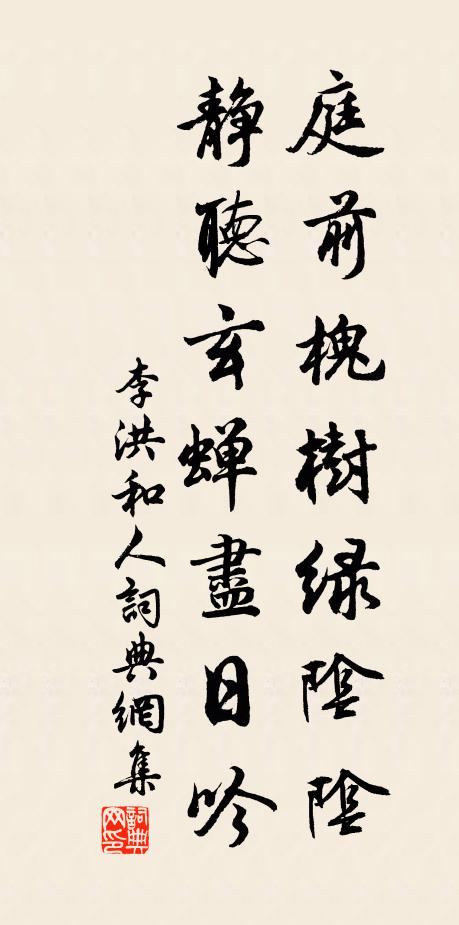 庭前槐樹綠陰陰
靜聽玄蟬盡日吟
李洪和人詞典網集
詞典網印